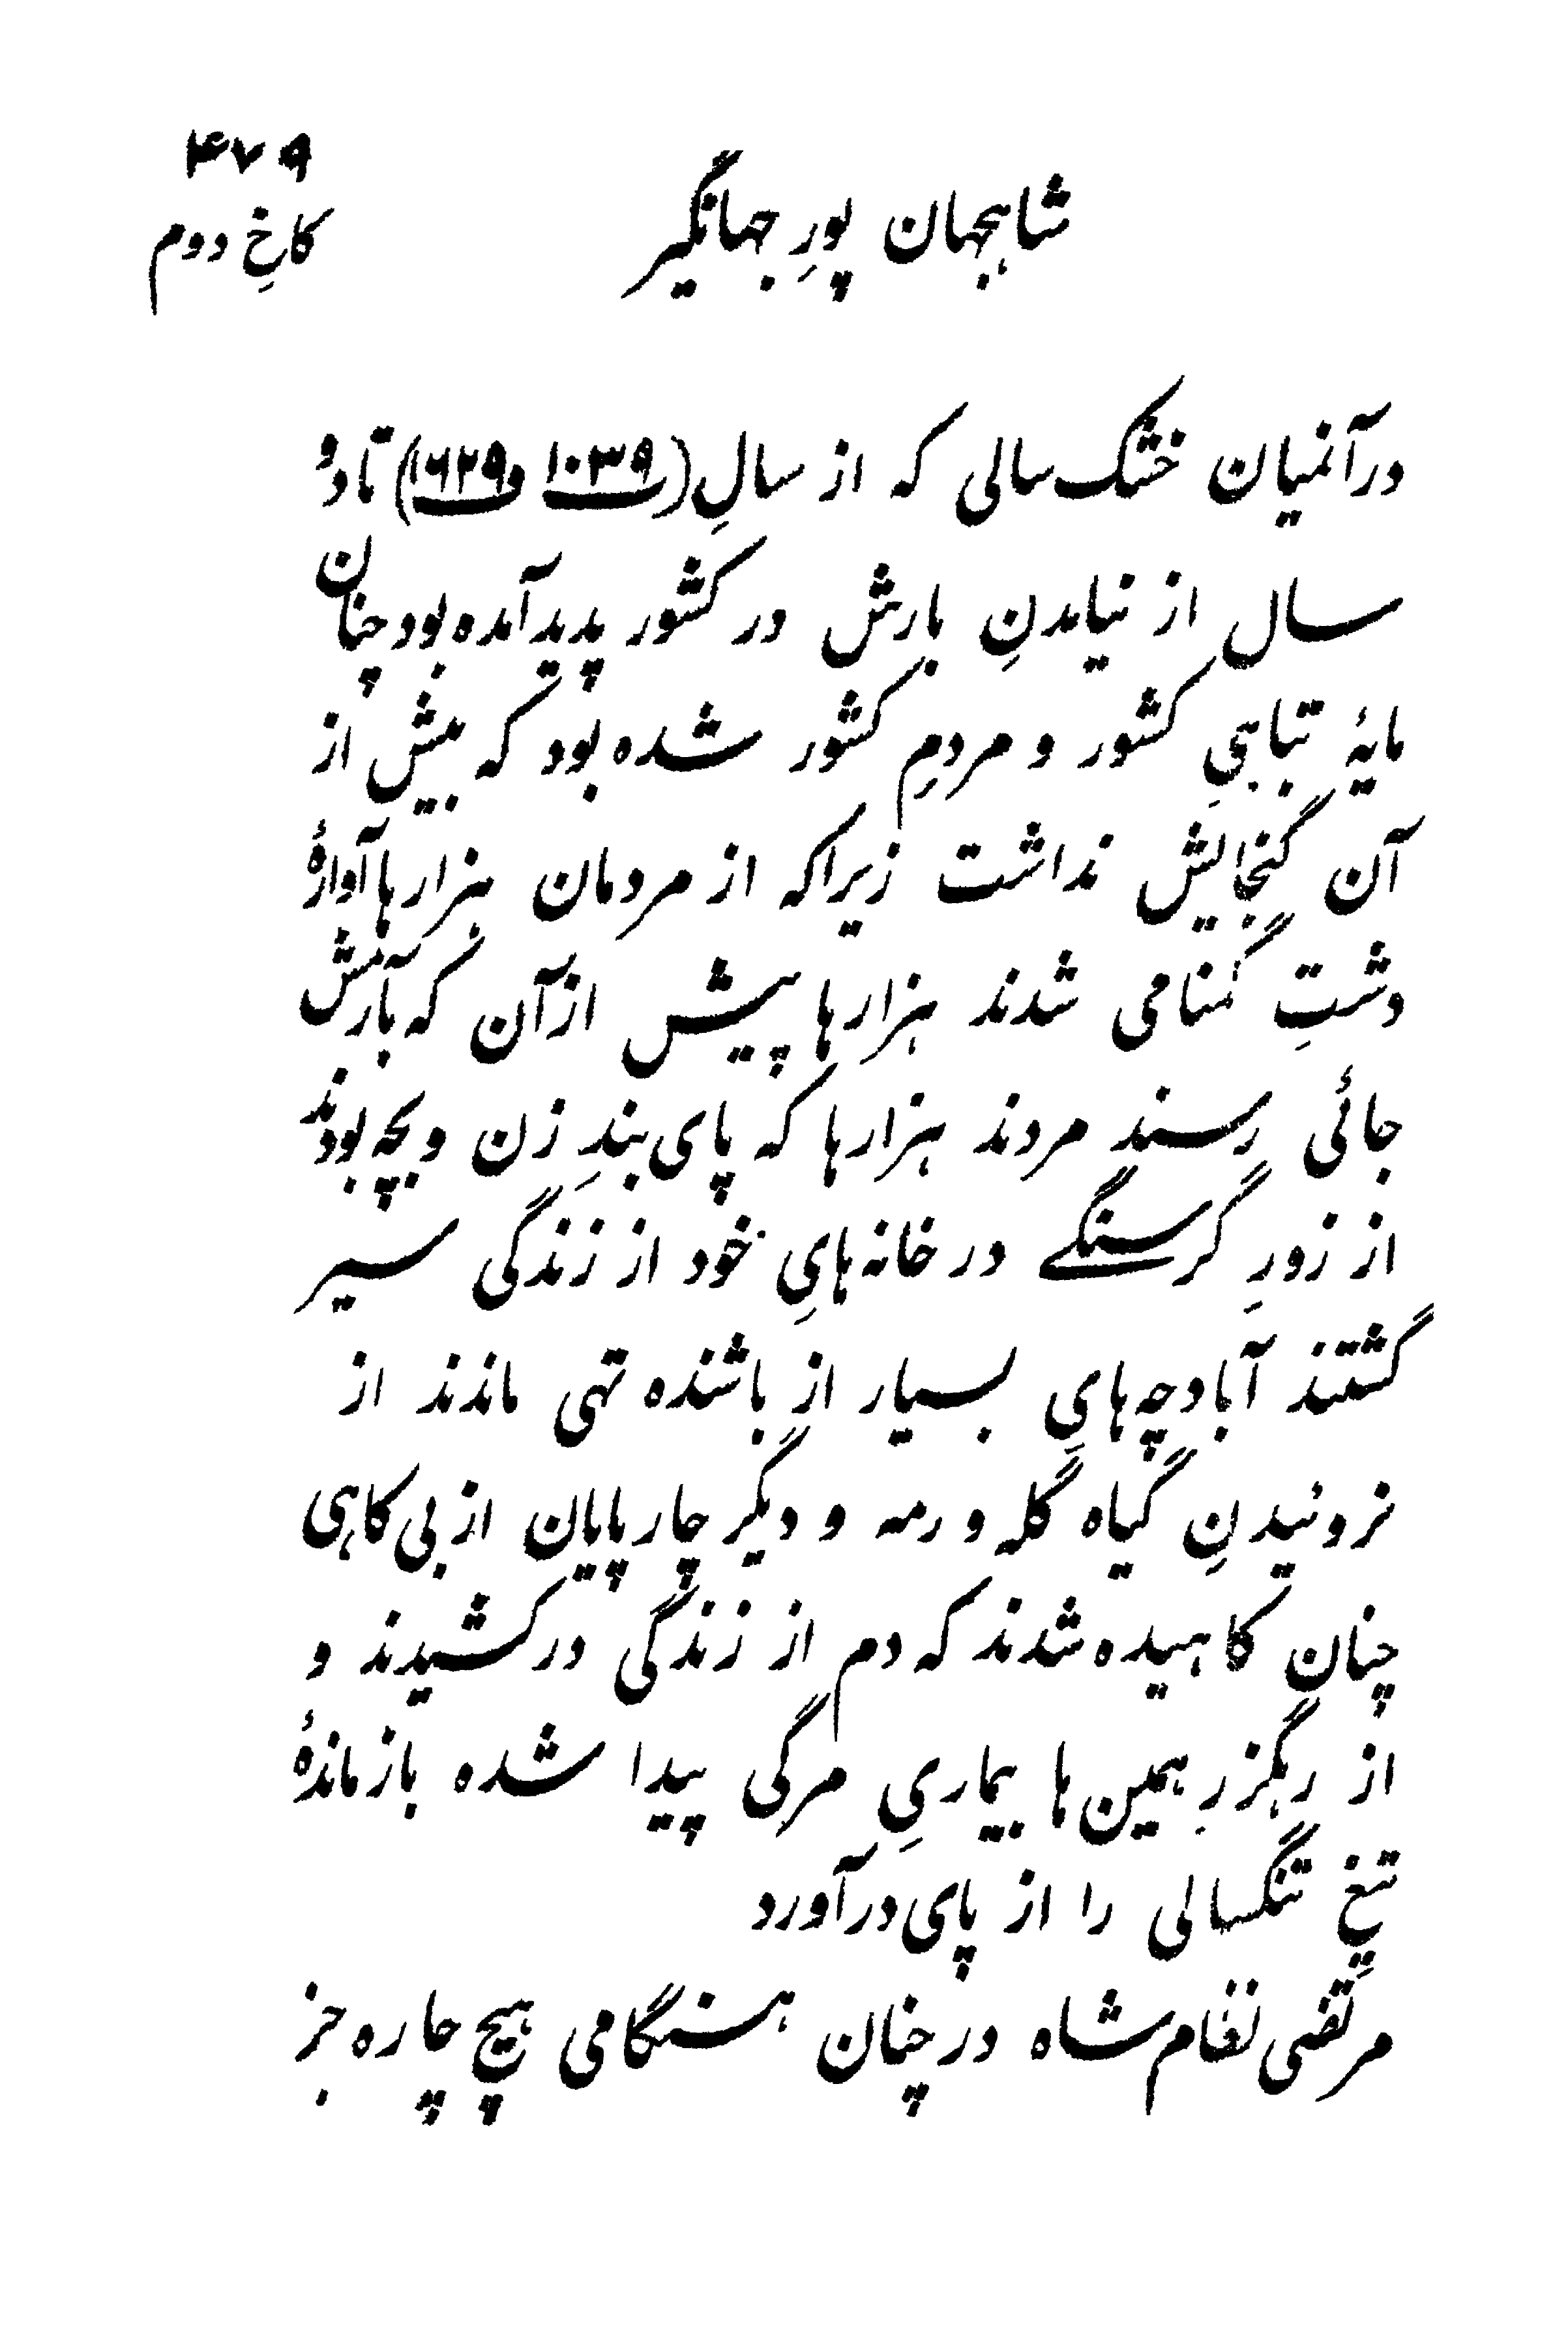 ۴۷۹
کاخِ دوم
شاہجہان پورِ جہانگیر
درآنمیان خشک سالی که از سالِ (۱۰۳۹ و ۱۶۲۹) تا دو
سال از نیامدنِ بارش در کشور پدید آمده بود چنان
مایهٔ تباهیِ کشور و مردمِ کشور شده بود که بیش از
آن گنجایش نداشت زیراکه از مردمان هزارها آوارهٔ
دشتِ گمنامی شدند هزارها پیش از آن که بآرمش
جائی رسند مردند هزارها که پای بندِ زن و بچه بودند
از زورِ گرسنگے در خانه هایِ خود از زندگی سیر
گشتند آبادچه هایِ بسیار از باشنده تهی ماندند از
نروئیدنِ گیاه گله و رمه و دیگر چارپایان از بی کاهی
چنان کاهیده شدند که دم از زندگی درکشیدند و
از رهگزرِ همین ها بیماریِ مرگی پیدا شده بازماندهٔ
تیغِ تنگسالی را از پای درآورد
مرتضی نظام شاه در چنان هنگامی هیچ چاره جز